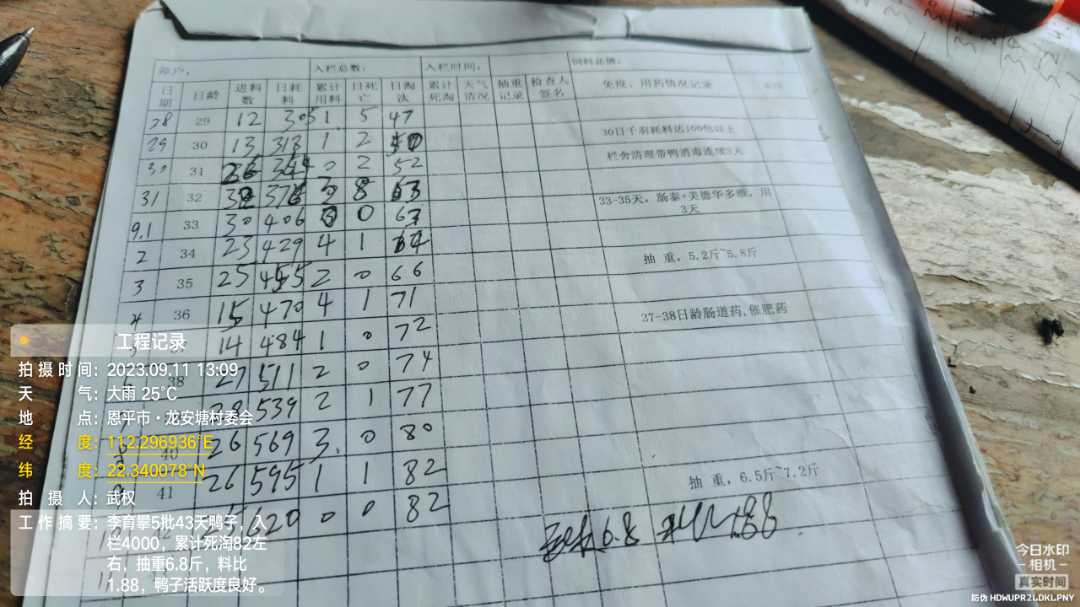 入栏总数： 入栏时间：
日期 日龄 进料数 日耗料 累计用料 日死亡 日淘汰 累计死淘 天气情况 抽重记录 检查人签名 免疫、用药情况记录
28 29 12 305 1 5 47
29 30 13 318 1 2 50
30日千羽耗料达100包以上
30 31 26 344 0 2 52
栏舍清理带鸭消毒连续3天
31 32 32 376 3 8 63
33-35天，肠泰+美德华多维，用3天
9.1 33 30 406 0 0 63
2 34 23 429 4 1 64
抽 重，5.2斤~5.8斤
3 35 25 455 2 0 66
4 36 15 470 4 1 71
37-38日龄肠道药，催肥药
14 484 1 0 72
38 27 511 2 0 74
539 2 1 77
40 26 569 3. 0 80
41 26 595 1 1 82
抽 重，6.5斤~7.2斤
20 0 0 82
6.8
工程记录
拍摄时间：2023.09.11 13:09
天气：大雨 25℃
地点：恩平市·龙安塘村委会
经度：112.296936°E
纬度：22.340078°N
拍摄人：武权
工作摘要：李育攀5批43天鸭子，入
栏4000，累计死淘82左
右，抽重6.8斤，料比
1.88，鸭子活跃度良好。
今日水印
相机
真实时间
防伪 HDWUPR2LDKLPNY